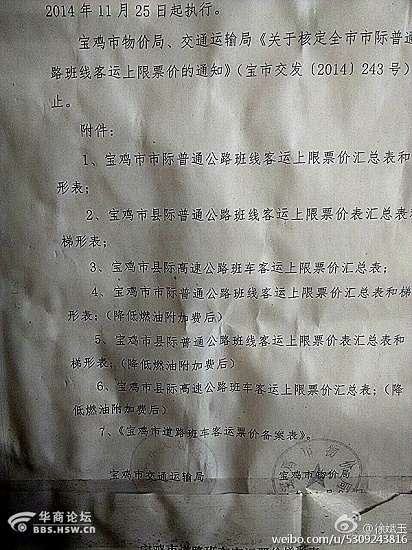 2014年11月25日起执行。
宝鸡市物价局、交通运输局《关于核定全市市际普通
路班线客运上限票价的通知》(宝市交发〔2014〕243号)
止。
附件:
1、宝鸡市市际普通公路班线客运上限票价汇总表和
形表;
2、宝鸡市县际普通公路班线客运上限票价表汇总表和
梯形表;
3、宝鸡市县际高速公路班车客运上限票价汇总表;
4、宝鸡市市际普通公路班线客运上限票价汇总表和梯
形表;(降低燃油附加费后)
5、宝鸡市县际普通公路班线客运上限票价汇总表和
梯形表;(降低燃油附加费后)
6、宝鸡市县际高速公路班车客运上限票价汇总表;(降
低燃油附加费后)
7、《宝鸡市道路班车客运票价备案表》。
宝鸡市交通运输局 宝鸡市物价局
华商论坛
BBS.HSW.CN
@徐斌玉
weibo.com/u/5309243816